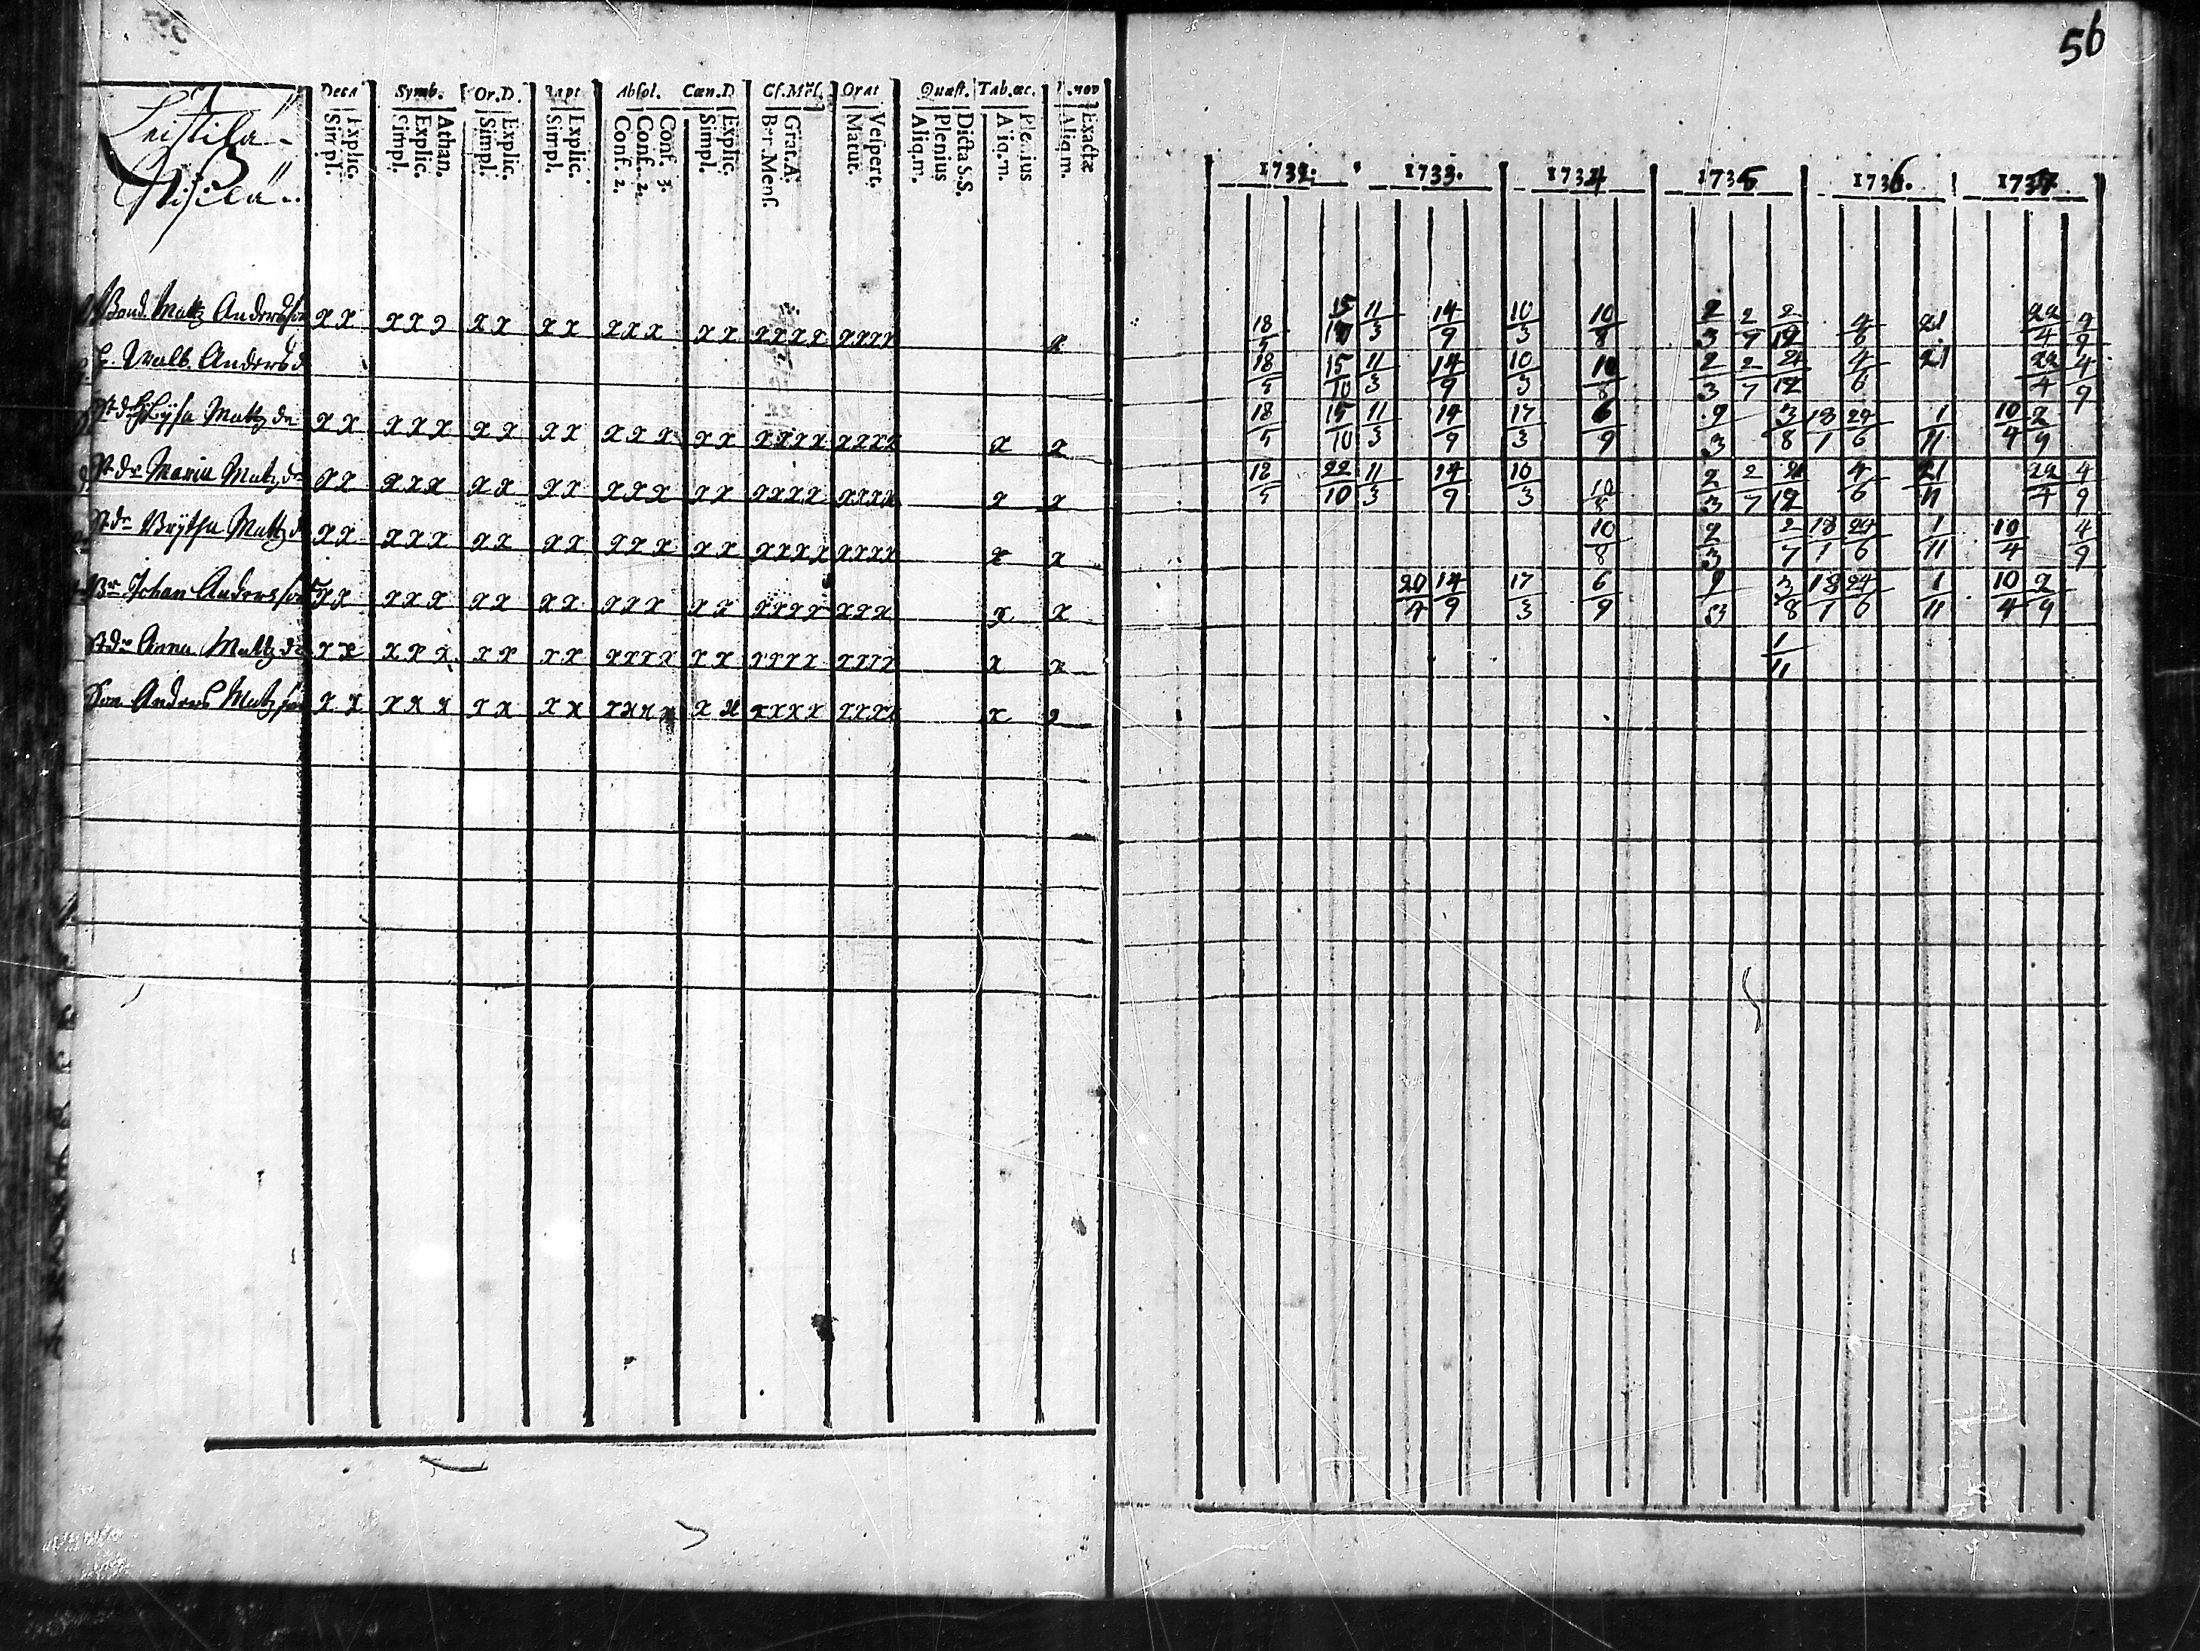 56
Deca Symb. Or.D. Bapt Absol. Cœn.D Cf.Mēs. Orat Quæst. Tab.œc.
Explic. Simpl. Athan. Explic. Simpl. Explic. Simpl. Explic. Simpl. Conf. 3. Conf. 2. Conf. 2. Explic. Simpl. Grat.A. Ben.Mens. Vespert. Matut. Dicta S.S. Plenius Aliq.m. Plenius Aliq.m. Exactæ Aliq.m.
1733. 1734 1735 1736. 1737.
Bond. Matz Andersson x x x x x x x x x x x x x x x x x x x x x x x
18/5 15/10 11/3 14/9 10/3 10/8 2/3 2/7 2/12 4/6 21 22/4 4/9
H. Walb. Andersd
18/5 15/10 11/3 14/9 10/3 10/8 2/3 2/7 21/12 4/6 21 22/4 4/9
Lysa Matz dr x x x x x x x x x x x x x x x x x x x x x x x x
18/5 15/10 11/3 14/9 17/3 6/9 9/3 3/8 18/1 24/6 1/11 10/4 2/9
dr Maria Matz dr x x x x x x x x x x x x x x x x x x x x x x x x
18/5 22/10 11/3 14/9 10/3 10/8 2/3 2/7 21/12 4/6 21/11 22/4 4/9
dr Brytha Matz d x x x x x x x x x x x x x x x x x x x x x x x x
10/8 2/3 2/7 18/1 24/6 1/11 10/4 4/9
Br Johan Andersson x x x x x x x x x x x x x x x x x x x x x x x
20/4 14/9 17/3 6/9 9/3 3/8 18/1 24/6 1/11 10/4 2/9
dr Anna Matz dr x x x x x x x x x x x x x x x x x x x x x x x x x
1/11
Son Anders Matzson x x x x x x x x x x x x x x x x x x x x x x x x